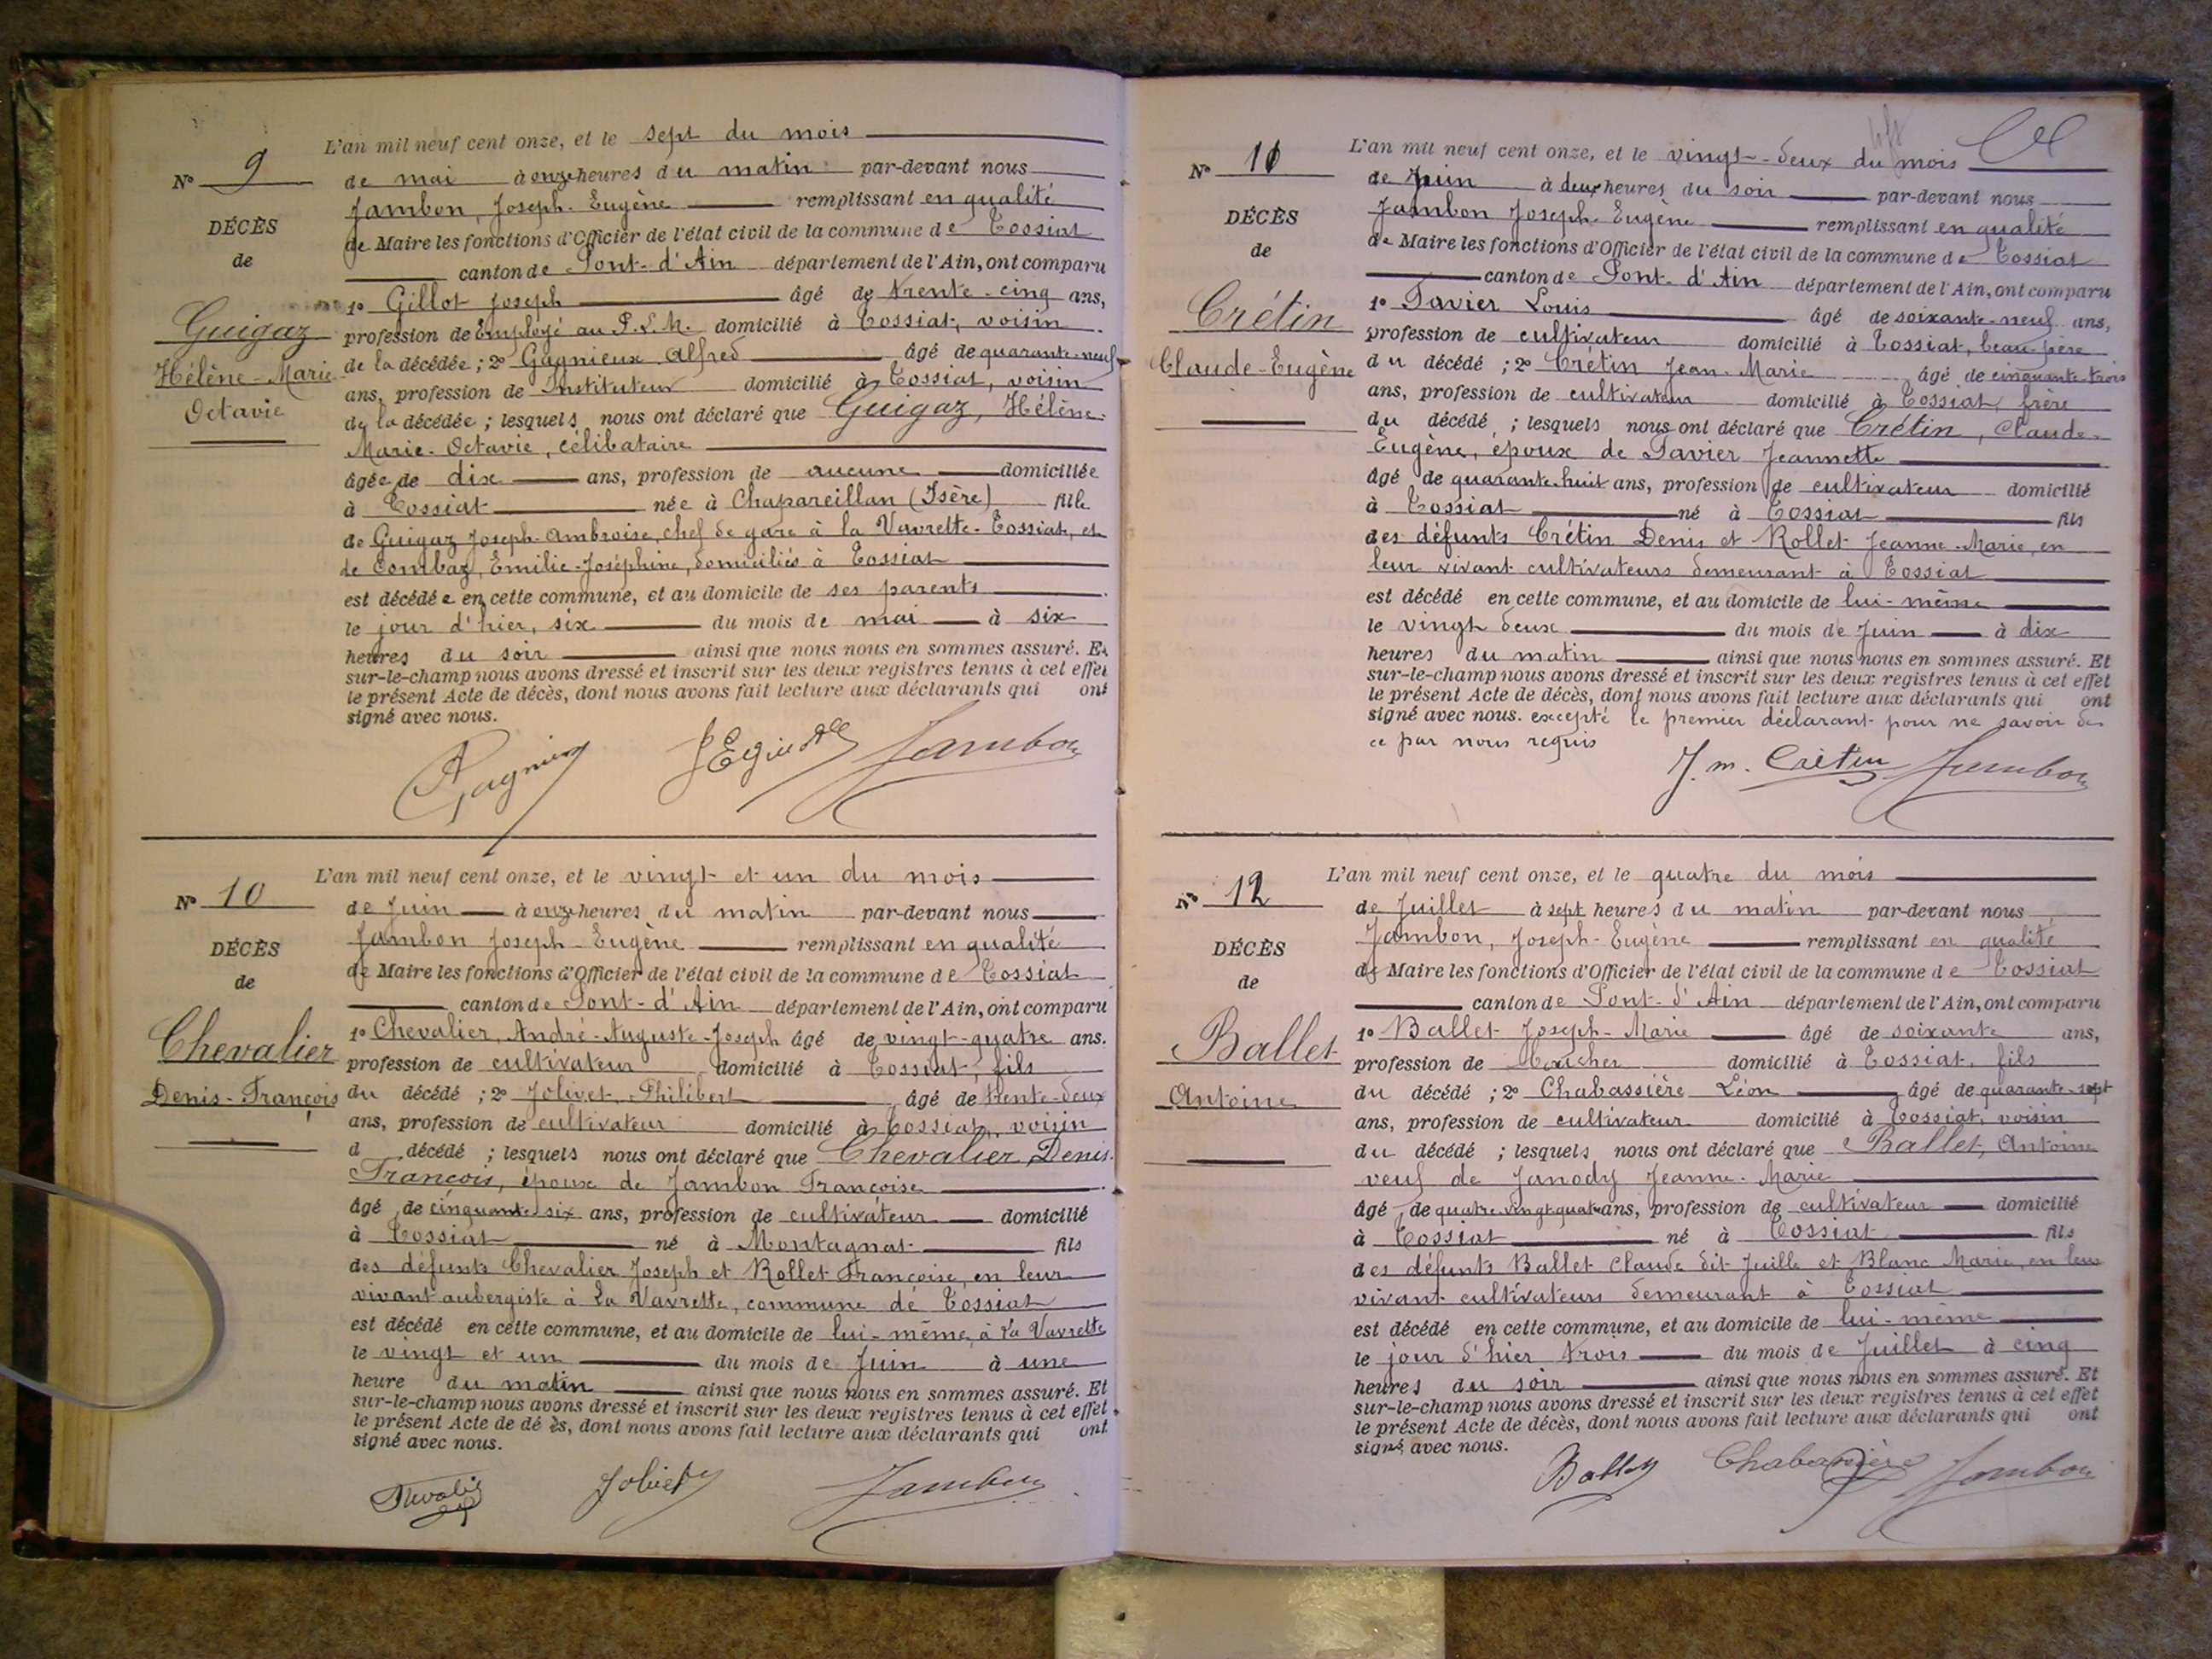 L'an mil neuf cent onze, et le sept du mois
N° 9
de mai à onze heures du matin par-devant nous
Jambon, Joseph-Eugène remplissant en qualité
DÉCÈS
de Maire les fonctions d'Officier de l'état civil de la commune de Tossiat
de
canton de Pont-d'Ain département de l'Ain, ont comparu
1° Gillot Joseph âgé de trente-cinq ans,
Guigaz
profession de Employé au P.L.M. domicilié à Tossiat, voisin
Hélène-Marie
de la décédée ; 2° Gagnieux Alfred âgé de quarante-neuf
ans, profession de Instituteur domicilié à Tossiat, voisin
Octavie
de la décédée ; lesquels nous ont déclaré que Guigaz, Hélène-
Marie-Octavie, célibataire
âgée de dix ans, profession de aucune domiciliée
à Tossiat née à Chapareillan (Isère) fille
de Guigaz Joseph-Ambroise, chef de gare à la Vavrette-Tossiat, et
de Combaz, Emilie-Joséphine, domiciliés à Tossiat
est décédée en cette commune, et au domicile de ses parents
le jour d'hier, six du mois de mai à six
heures du soir ainsi que nous nous en sommes assuré. Et
sur-le-champ nous avons dressé et inscrit sur les deux registres tenus à cet effet
le présent Acte de décès, dont nous avons fait lecture aux déclarants qui ont
signé avec nous.
Jambon
L'an mil neuf cent onze, et le vingt et un du mois
N° 10
de Juin à onze heures du matin par-devant nous
Jambon Joseph-Eugène remplissant en qualité
DÉCÈS
de Maire les fonctions d'Officier de l'état civil de la commune de Tossiat
de
canton de Pont-d'Ain département de l'Ain, ont comparu
1° Chevalier, André-Auguste-Joseph âgé de vingt-quatre ans.
Chevalier
profession de cultivateur domicilié à Tossiat, fils
Denis-François
du décédé ; 2° Jolivet, Philibert âgé de trente-deux
ans, profession de cultivateur domicilié à Tossiat, voisin
d décédé ; lesquels nous ont déclaré que Chevalier Denis-
François, époux de Jambon Françoise
âgé de cinquante-six ans, profession de cultivateur domicilié
à Tossiat né à Montagnat fils
des défunts Chevalier Joseph et Rollet Françoise, en leur
vivant aubergiste à La Vavrette, commune de Tossiat
est décédé en cette commune, et au domicile de lui-même, à La Vavrette
le vingt et un du mois de Juin à une
heure du matin ainsi que nous nous en sommes assuré. Et
sur-le-champ nous avons dressé et inscrit sur les deux registres tenus à cet effet
le présent Acte de dé ès, dont nous avons fait lecture aux déclarants qui ont
signé avec nous.
Jolivet Jambon
L'an mil neuf cent onze, et le vingt-deux du mois
N° 11
de Juin à deux heures du soir par-devant nous
Jambon Joseph-Eugène remplissant en qualité
DÉCÈS
de Maire les fonctions d'Officier de l'état civil de la commune de Tossiat
de
canton de Pont-d'Ain département de l'Ain, ont comparu
1° Pavier Louis âgé de soixante-neuf ans,
Crétin
profession de cultivateur domicilié à Tossiat, beau-père
Claude-Eugène
du décédé ; 2° Crétin Jean-Marie âgé de cinquante-trois
ans, profession de cultivateur domicilié à Tossiat, frère
du décédé ; lesquels nous ont déclaré que Crétin, Claude-
Eugène, époux de Pavier Jeannette
âgé de quarante-huit ans, profession de cultivateur domicilié
à Tossiat né à Tossiat fils
des défunts Crétin Denis et Rollet Jeanne-Marie, en
leur vivant cultivateurs demeurant à Tossiat
est décédé en cette commune, et au domicile de lui-même
le vingt deux du mois de Juin à dix
heures du matin ainsi que nous nous en sommes assuré. Et
sur-le-champ nous avons dressé et inscrit sur les deux registres tenus à cet effet
le présent Acte de décès, dont nous avons fait lecture aux déclarants qui ont
signé avec nous. excepté le premier déclarant pour ne savoir de
ce par nous requis
J. m. Crétin Jambon
L'an mil neuf cent onze, et le quatre du mois
N° 12
de Juillet à sept heures du matin par-devant nous
Jambon, Joseph-Eugène remplissant en qualité
DÉCÈS
de Maire les fonctions d'Officier de l'état civil de la commune de Tossiat
de
canton de Pont-d'Ain département de l'Ain, ont comparu
1° Ballet Joseph-Marie âgé de soixante ans,
Ballet
profession de boucher domicilié à Tossiat, fils
Antoine
du décédé ; 2° Chabassière Léon âgé de quarante-sept
ans, profession de cultivateur domicilié à Tossiat, voisin
du décédé ; lesquels nous ont déclaré que Ballet, Antoine
veuf de Janody Jeanne-Marie
âgé de quatre-vingt-quatre ans, profession de cultivateur domicilié
à Tossiat né à Tossiat fils
des défunts Ballet Claude dit Juille et Blanc Marie, en leur
vivant cultivateurs demeurant à Tossiat
est décédé en cette commune, et au domicile de lui-même
le jour d'hier trois du mois de Juillet à cinq
heures du soir ainsi que nous nous en sommes assuré. Et
sur-le-champ nous avons dressé et inscrit sur les deux registres tenus à cet effet
le présent Acte de décès, dont nous avons fait lecture aux déclarants qui ont
signé avec nous.
Ballet Chabassière Jambon